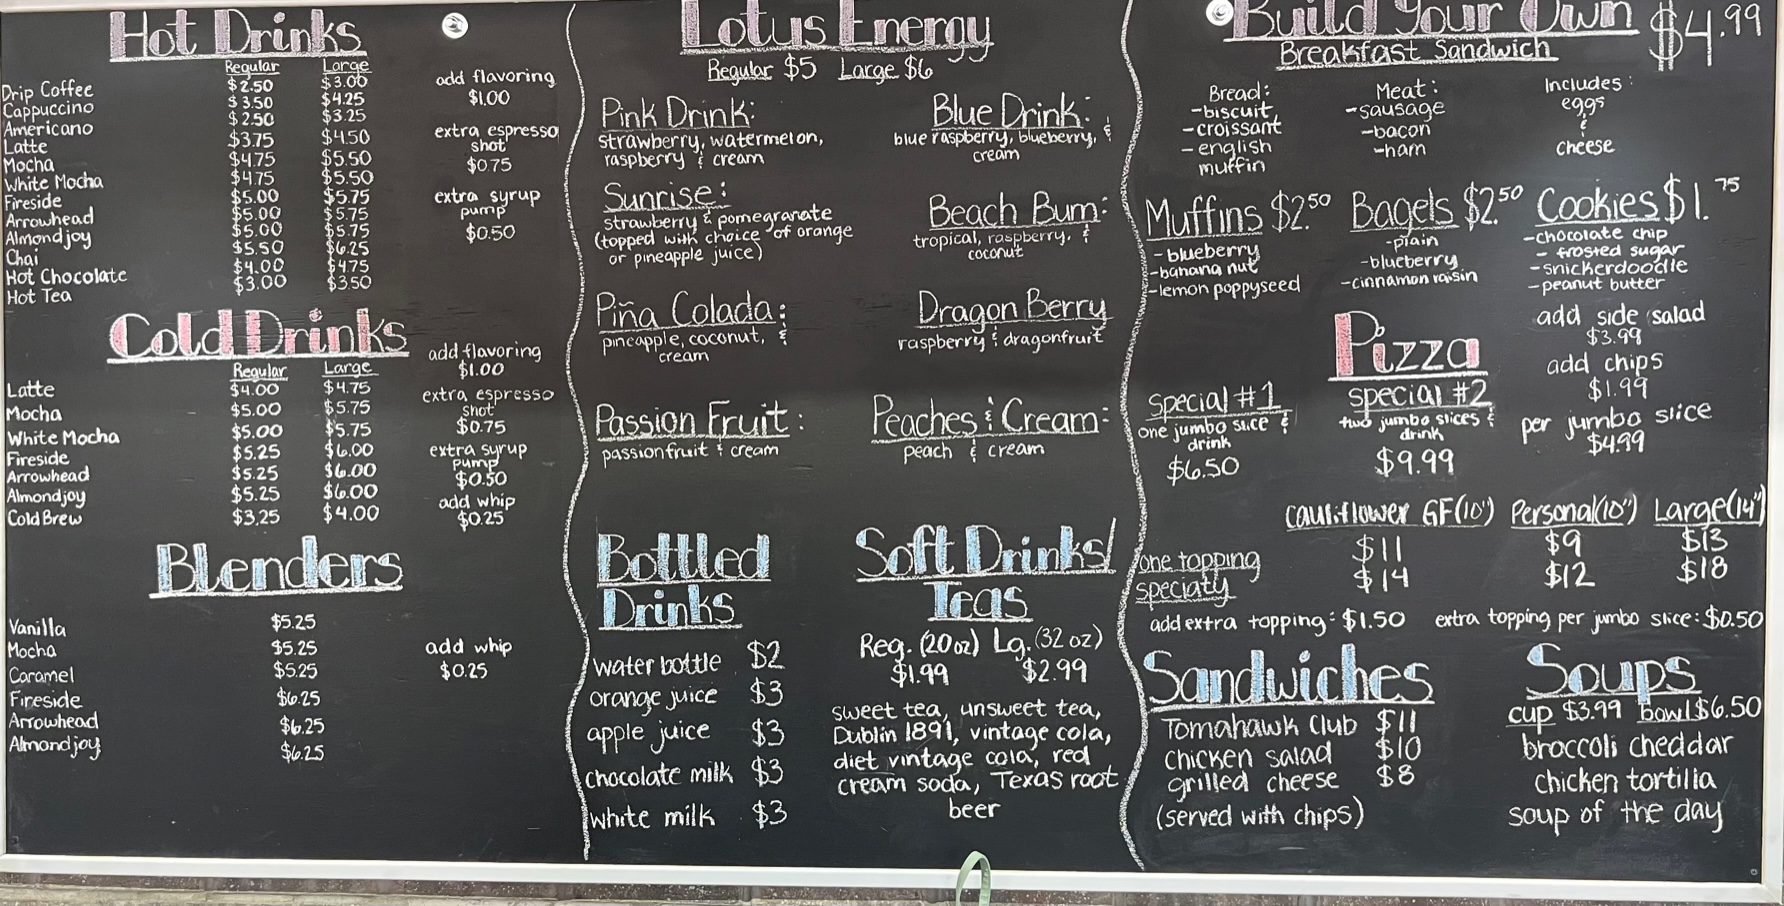 Hot Drinks
Regular Large
Drip Coffee $2.50 $3.00
Cappuccino $3.50 $4.25
Americano $2.50 $3.25
Latte $3.75 $4.50
Mocha $4.75 $5.50
White Mocha $4.75 $5.50
Fireside $5.00 $5.75
Arrowhead $5.00 $5.75
Almondjoy $5.00 $5.75
Chai $5.50 $6.25
Hot Chocolate $4.00 $4.75
Hot Tea $3.00 $3.50
add flavoring
$1.00
extra espresso
shot
$0.75
extra syrup
pump
$0.50
Cold Drinks
Regular Large
Latte $4.00 $4.75
Mocha $5.00 $5.75
White Mocha $5.00 $5.75
Fireside $5.25 $6.00
Arrowhead $5.25 $6.00
Almondjoy $5.25 $6.00
Cold Brew $3.25 $4.00
add flavoring
$1.00
extra espresso
shot
$0.75
extra syrup
pump
$0.50
add whip
$0.25
Blenders
Vanilla $5.25
Mocha $5.25
Caramel $5.25
Fireside $6.25
Arrowhead $6.25
Almondjoy $6.25
add whip
$0.25
Lotus Energy
Regular $5 Large $6
Pink Drink:
strawberry, watermelon,
raspberry & cream
Blue Drink:
blue raspberry, blueberry, &
cream
Sunrise:
strawberry & pomegranate
(topped with choice of orange
or pineapple juice)
Beach Bum:
tropical, raspberry, &
coconut
Piña Colada:
pineapple, coconut, &
cream
Dragon Berry
raspberry & dragonfruit
Passion Fruit:
passionfruit & cream
Peaches & Cream:
peach & cream
Bottled
Drinks
water bottle $2
orange juice $3
apple juice $3
chocolate milk $3
white milk $3
Soft Drinks/
Teas
Reg. (20oz) Lg. (32oz)
$1.99 $2.99
sweet tea, unsweet tea,
Dublin 1891, vintage cola,
diet vintage cola, red
cream soda, Texas root
beer
Build Your Own $4.99
Breakfast Sandwich
Bread:
-biscuit
-croissant
-english
muffin
Meat:
-sausage
-bacon
-ham
Includes:
eggs
&
cheese
Muffins $2.50
-blueberry
-banana nut
-lemon poppyseed
Bagels $2.50
-plain
-blueberry
-cinnamon raisin
Cookies $1.75
-chocolate chip
- frosted sugar
-snickerdoodle
-peanut butter
Pizza
special #1
one jumbo slice &
drink
$6.50
special #2
two jumbo slices &
drink
$9.99
add side salad
$3.99
add chips
$1.99
per jumbo slice
$4.99
cauliflower GF(10") Personal(10") Large(14")
one topping $11 $9 $13
specialty $14 $12 $18
add extra topping: $1.50 extra topping per jumbo slice: $0.50
Sandwiches
Tomahawk Club $11
chicken salad $10
grilled cheese $8
(served with chips)
Soups
cup $3.99 bowl $6.50
broccoli cheddar
chicken tortilla
soup of the day